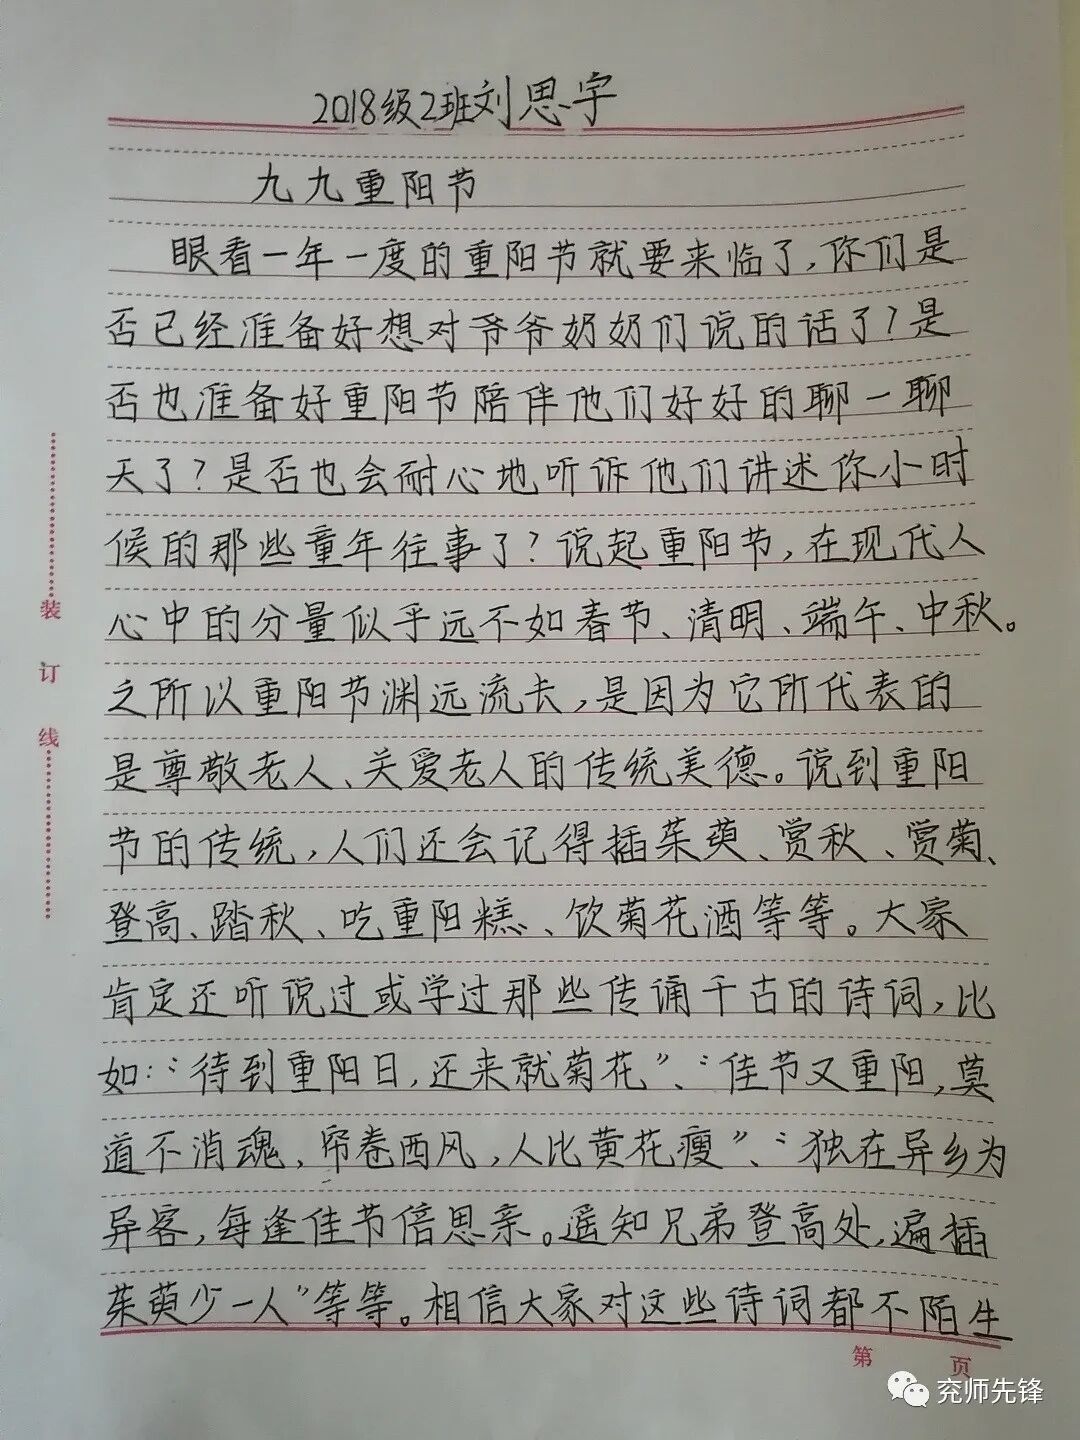 2018级2班刘思宇
九九重阳节
眼看一年一度的重阳节就要来临了,你们是
否已经准备好想对爷爷奶奶们说的话了?是
否也准备好重阳节陪伴他们好好的聊一聊
天了?是否也会耐心地听诉他们讲述你小时
候的那些童年往事了?说起重阳节,在现代人
心中的分量似乎远不如春节、清明、端午、中秋。
之所以重阳节渊远流长,是因为它所代表的
是尊敬老人、关爱老人的传统美德。说到重阳
节的传统,人们还会记得插茱萸、赏秋、赏菊、
登高、踏秋、吃重阳糕、饮菊花酒等等。大家
肯定还听说过或学过那些传诵千古的诗词,比
如:“待到重阳日,还来就菊花”、“佳节又重阳,莫
道不消魂,帘卷西风,人比黄花瘦”、“独在异乡为
异客,每逢佳节倍思亲。遥知兄弟登高处,遍插
茱萸少一人”等等。相信大家对这些诗词都不陌生
装
订
线
第 页
兖师先锋